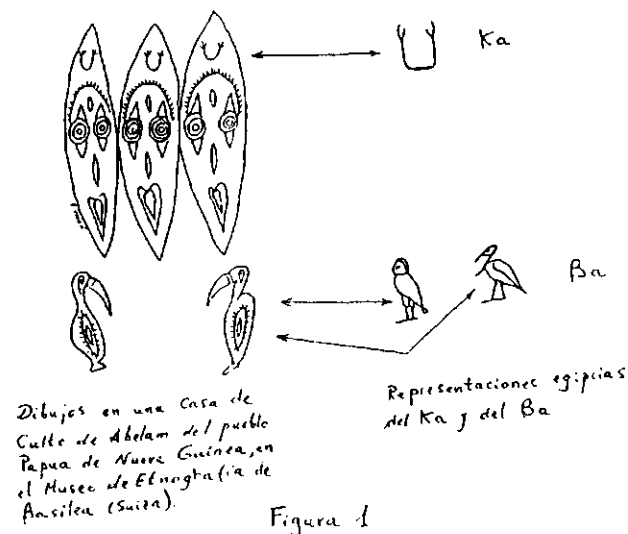 Ka
Ba
Dibujos en una Casa de
Culto de Abelam del pueblo
Papua de Nueva Guinea, en
el Museo de Etnografía de
Basilea (Suiza).
Representaciones egipcias
del Ka y del Ba
Figura 1